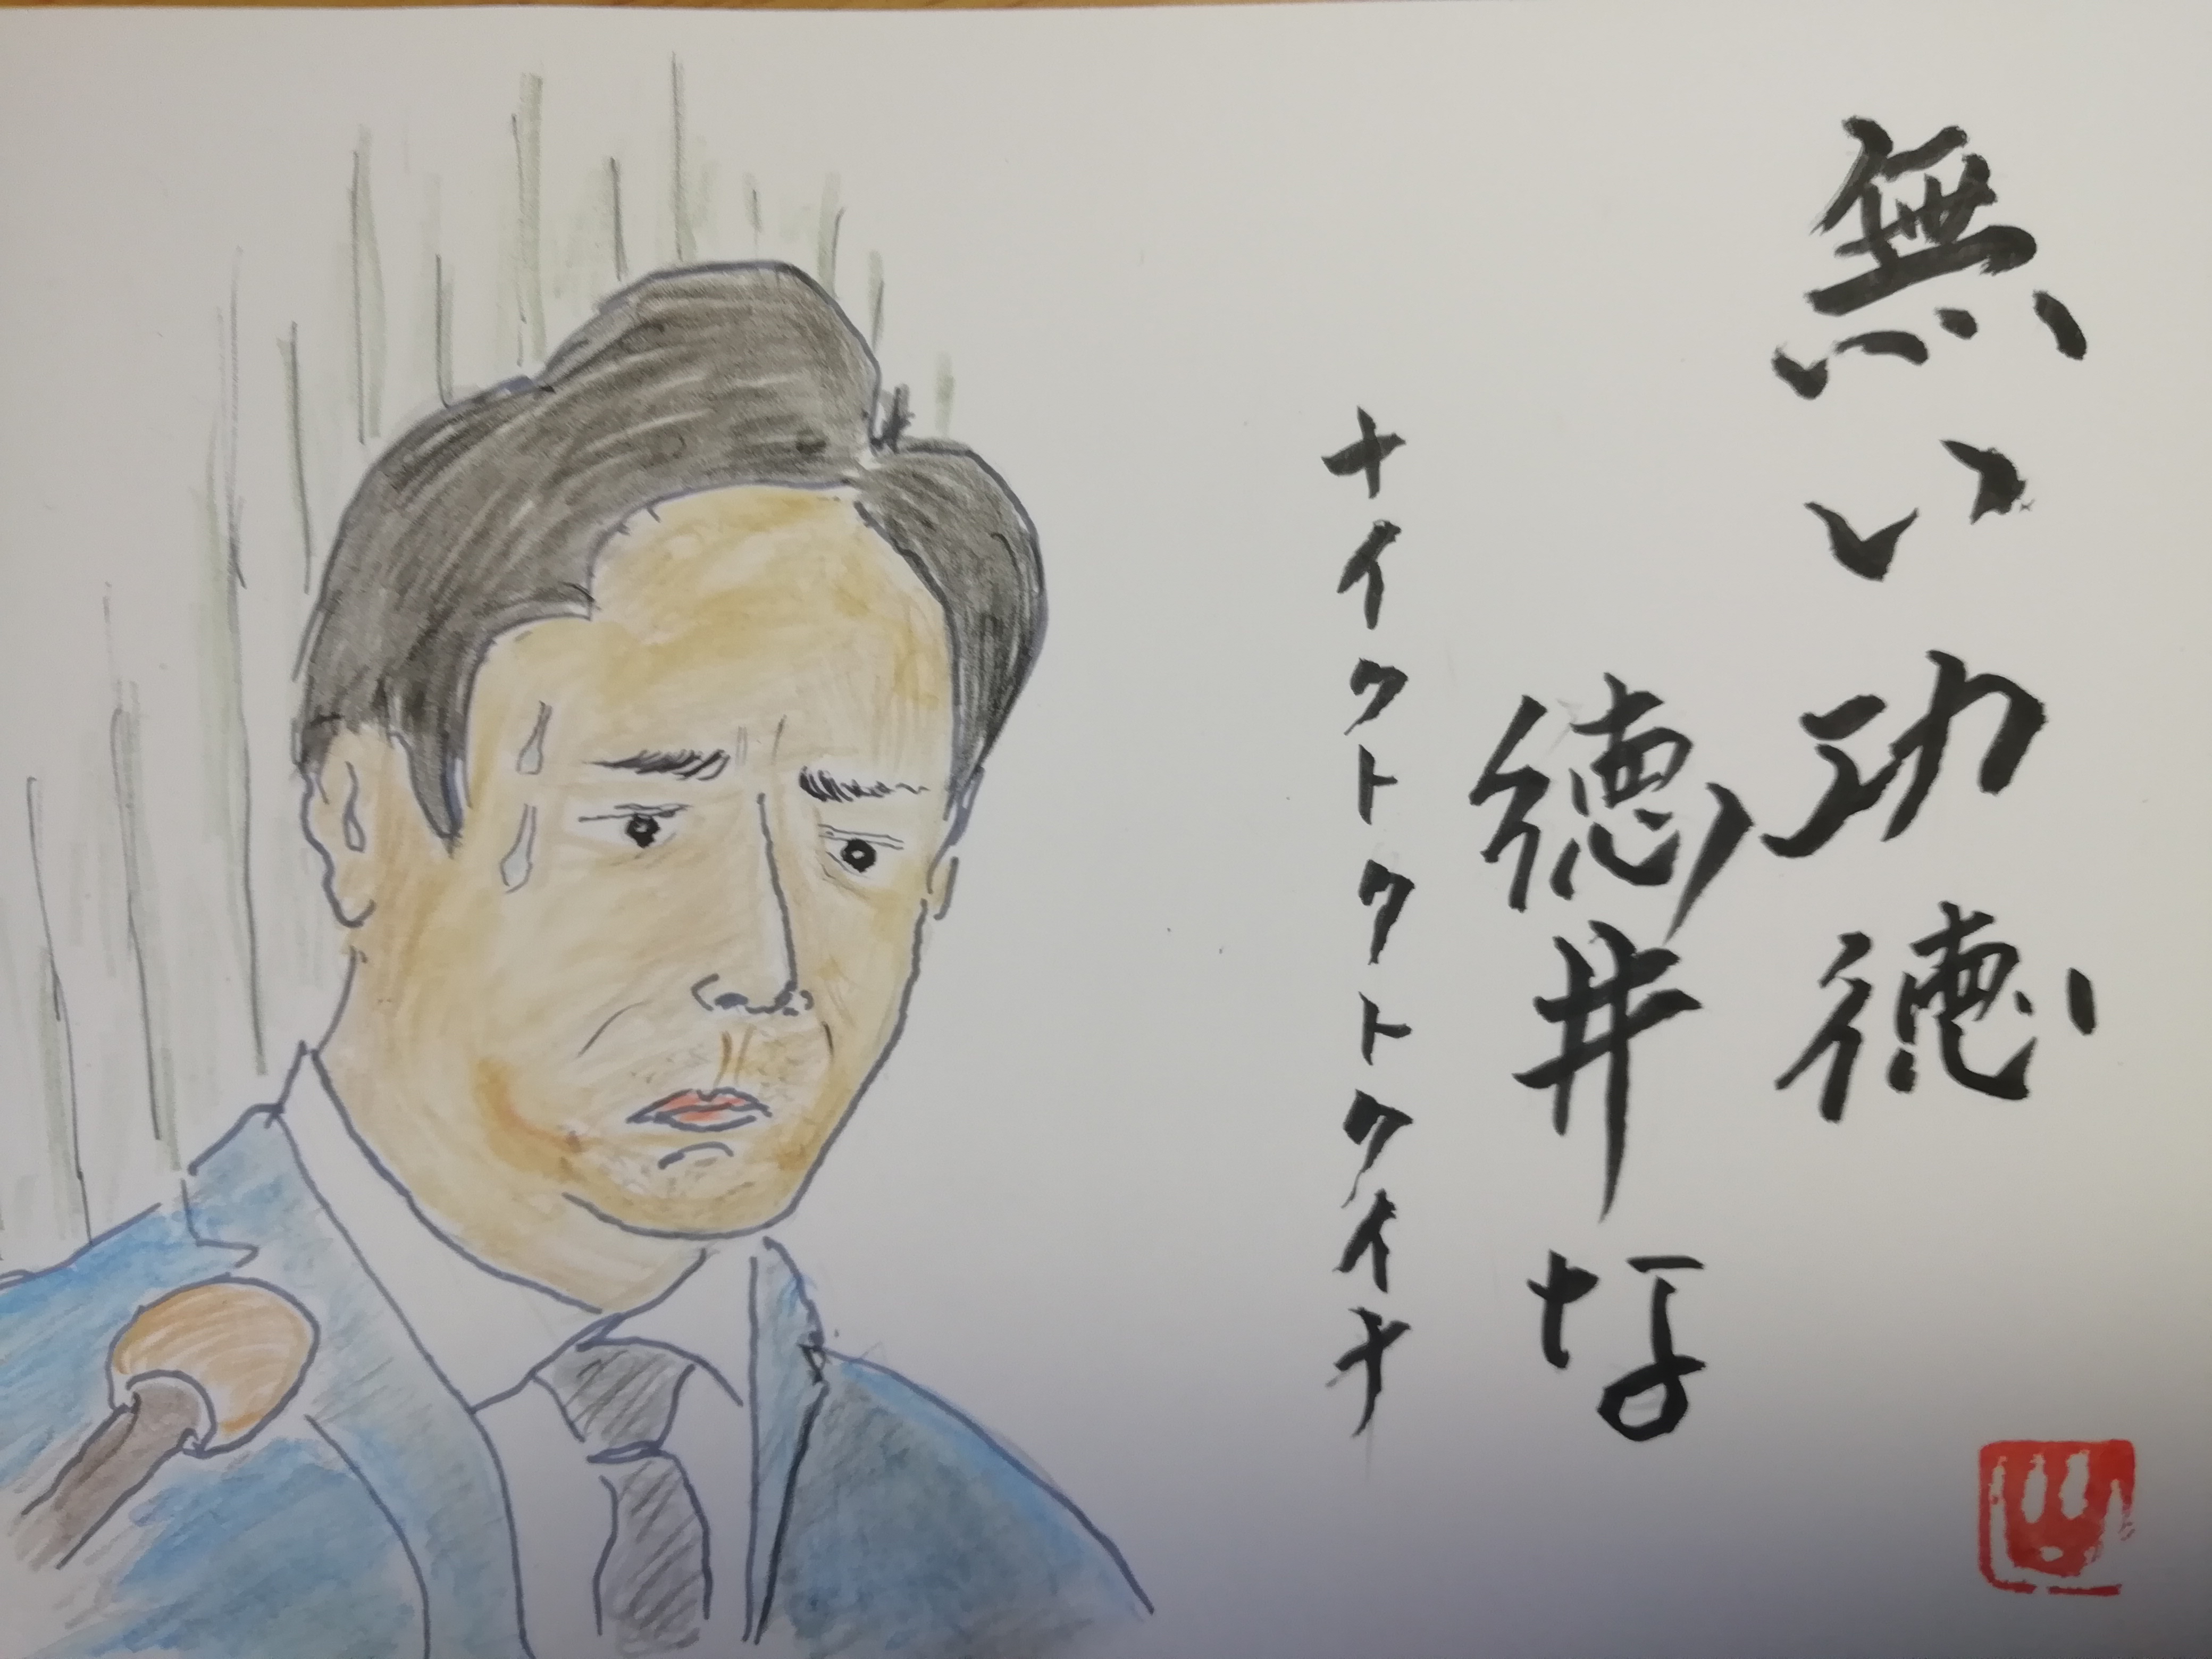 無い功徳
徳井な
ナイクトクトクイナ